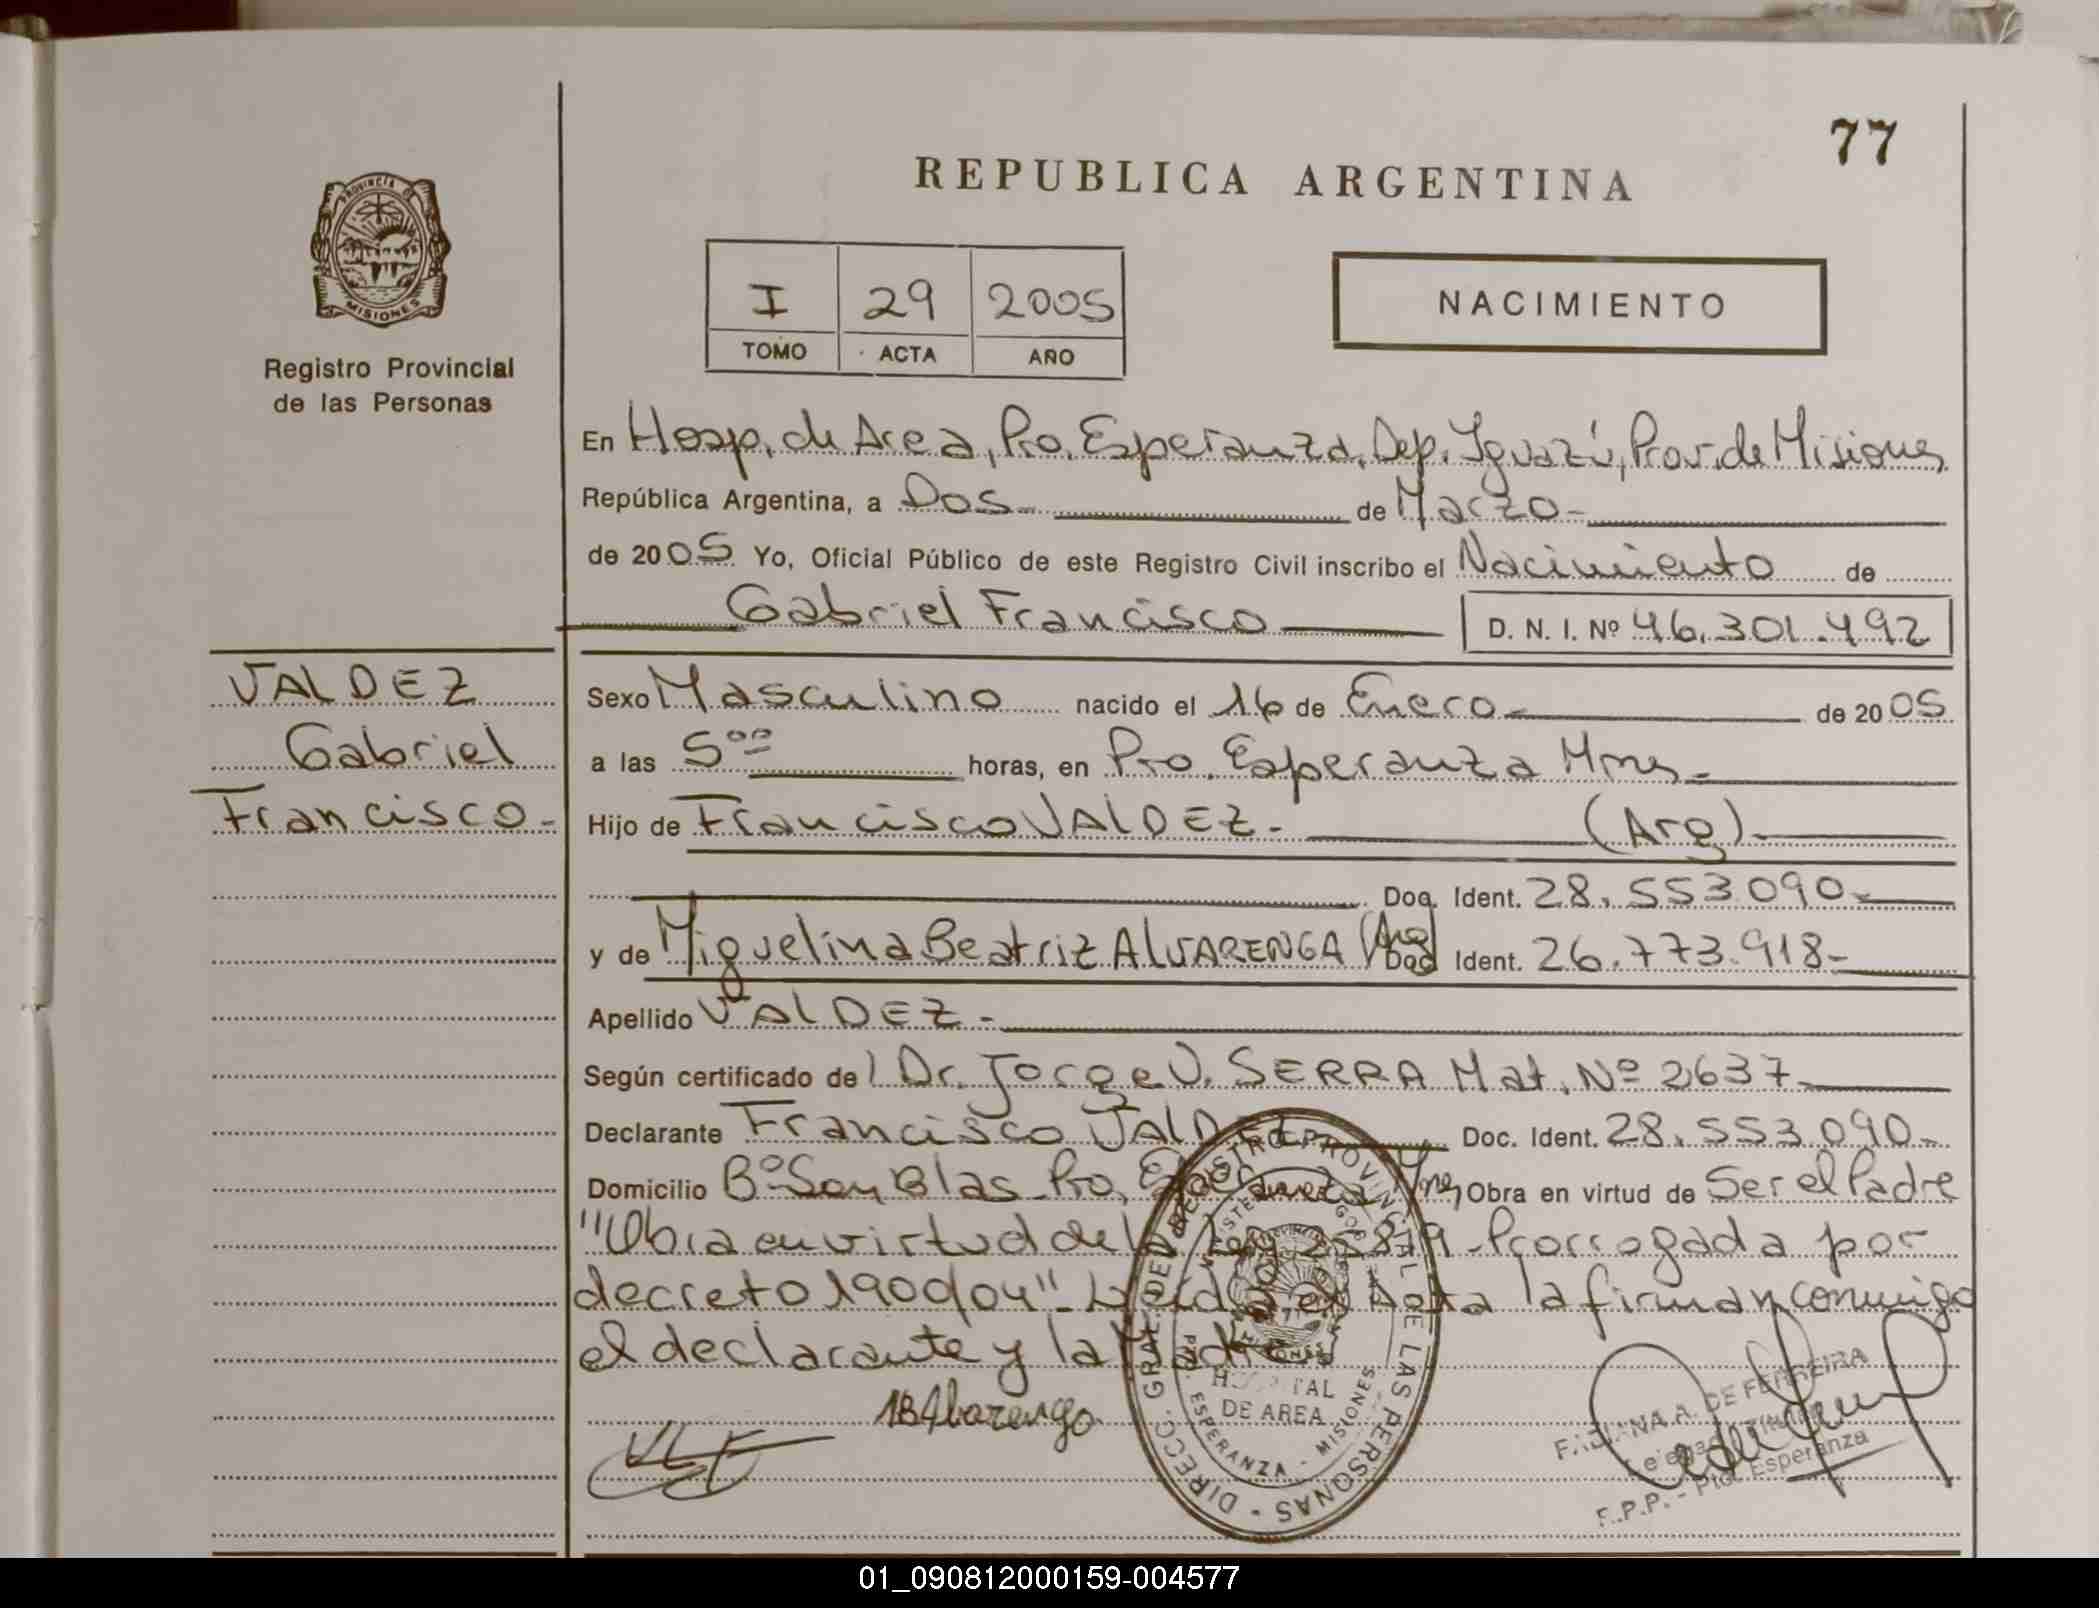 77
REPUBLICA ARGENTINA
PROVINCIA DE
MISIONES
Registro Provincial
de las Personas
I 29 2005
TOMO ACTA AÑO
NACIMIENTO
En Hosp. de Area, Pto. Esperanza, Dep. Iguazú, Prov. de Misiones
República Argentina, a Dos de Marzo
de 2005 Yo, Oficial Público de este Registro Civil inscribo el Nacimiento de
Gabriel Francisco D. N. I. Nº 46.301.492
VALDEZ
Gabriel
Francisco.-
Sexo Masculino nacido el 16 de Enero de 2005
a las 5ºº horas, en Pto. Esperanza Mnes.
Hijo de Francisco VALDEZ.- (Arg)
Doc. Ident. 28.553.090-
y de Miguelina Beatriz ALVARENGA (Arg) Doc Ident. 26.773.918-
Apellido VALDEZ.-
Según certificado del Dr. Jorge V. SERRA Mat. Nº 2637-
Declarante Francisco VALDEZ Doc. Ident. 28.553.090-
Domicilio Bº San Blas Pto. Esperanza Mnes Obra en virtud de Ser el Padre
"Obra en virtud de la Ley 25819 - Prorrogada por
decreto 1900/04" - Leída el Acta la firman conmigo
el declarante y la Madre
MBAlvarenga
DIRECC. GRAL. DEL REGISTRO PROVINCIAL DE LAS PERSONAS
HOSPITAL
DE AREA
ESPERANZA - MISIONES
FABIANA A. DE FERREIRA
Delegada Titular
R.P.P. - Pto. Esperanza
01_090812000159-004577